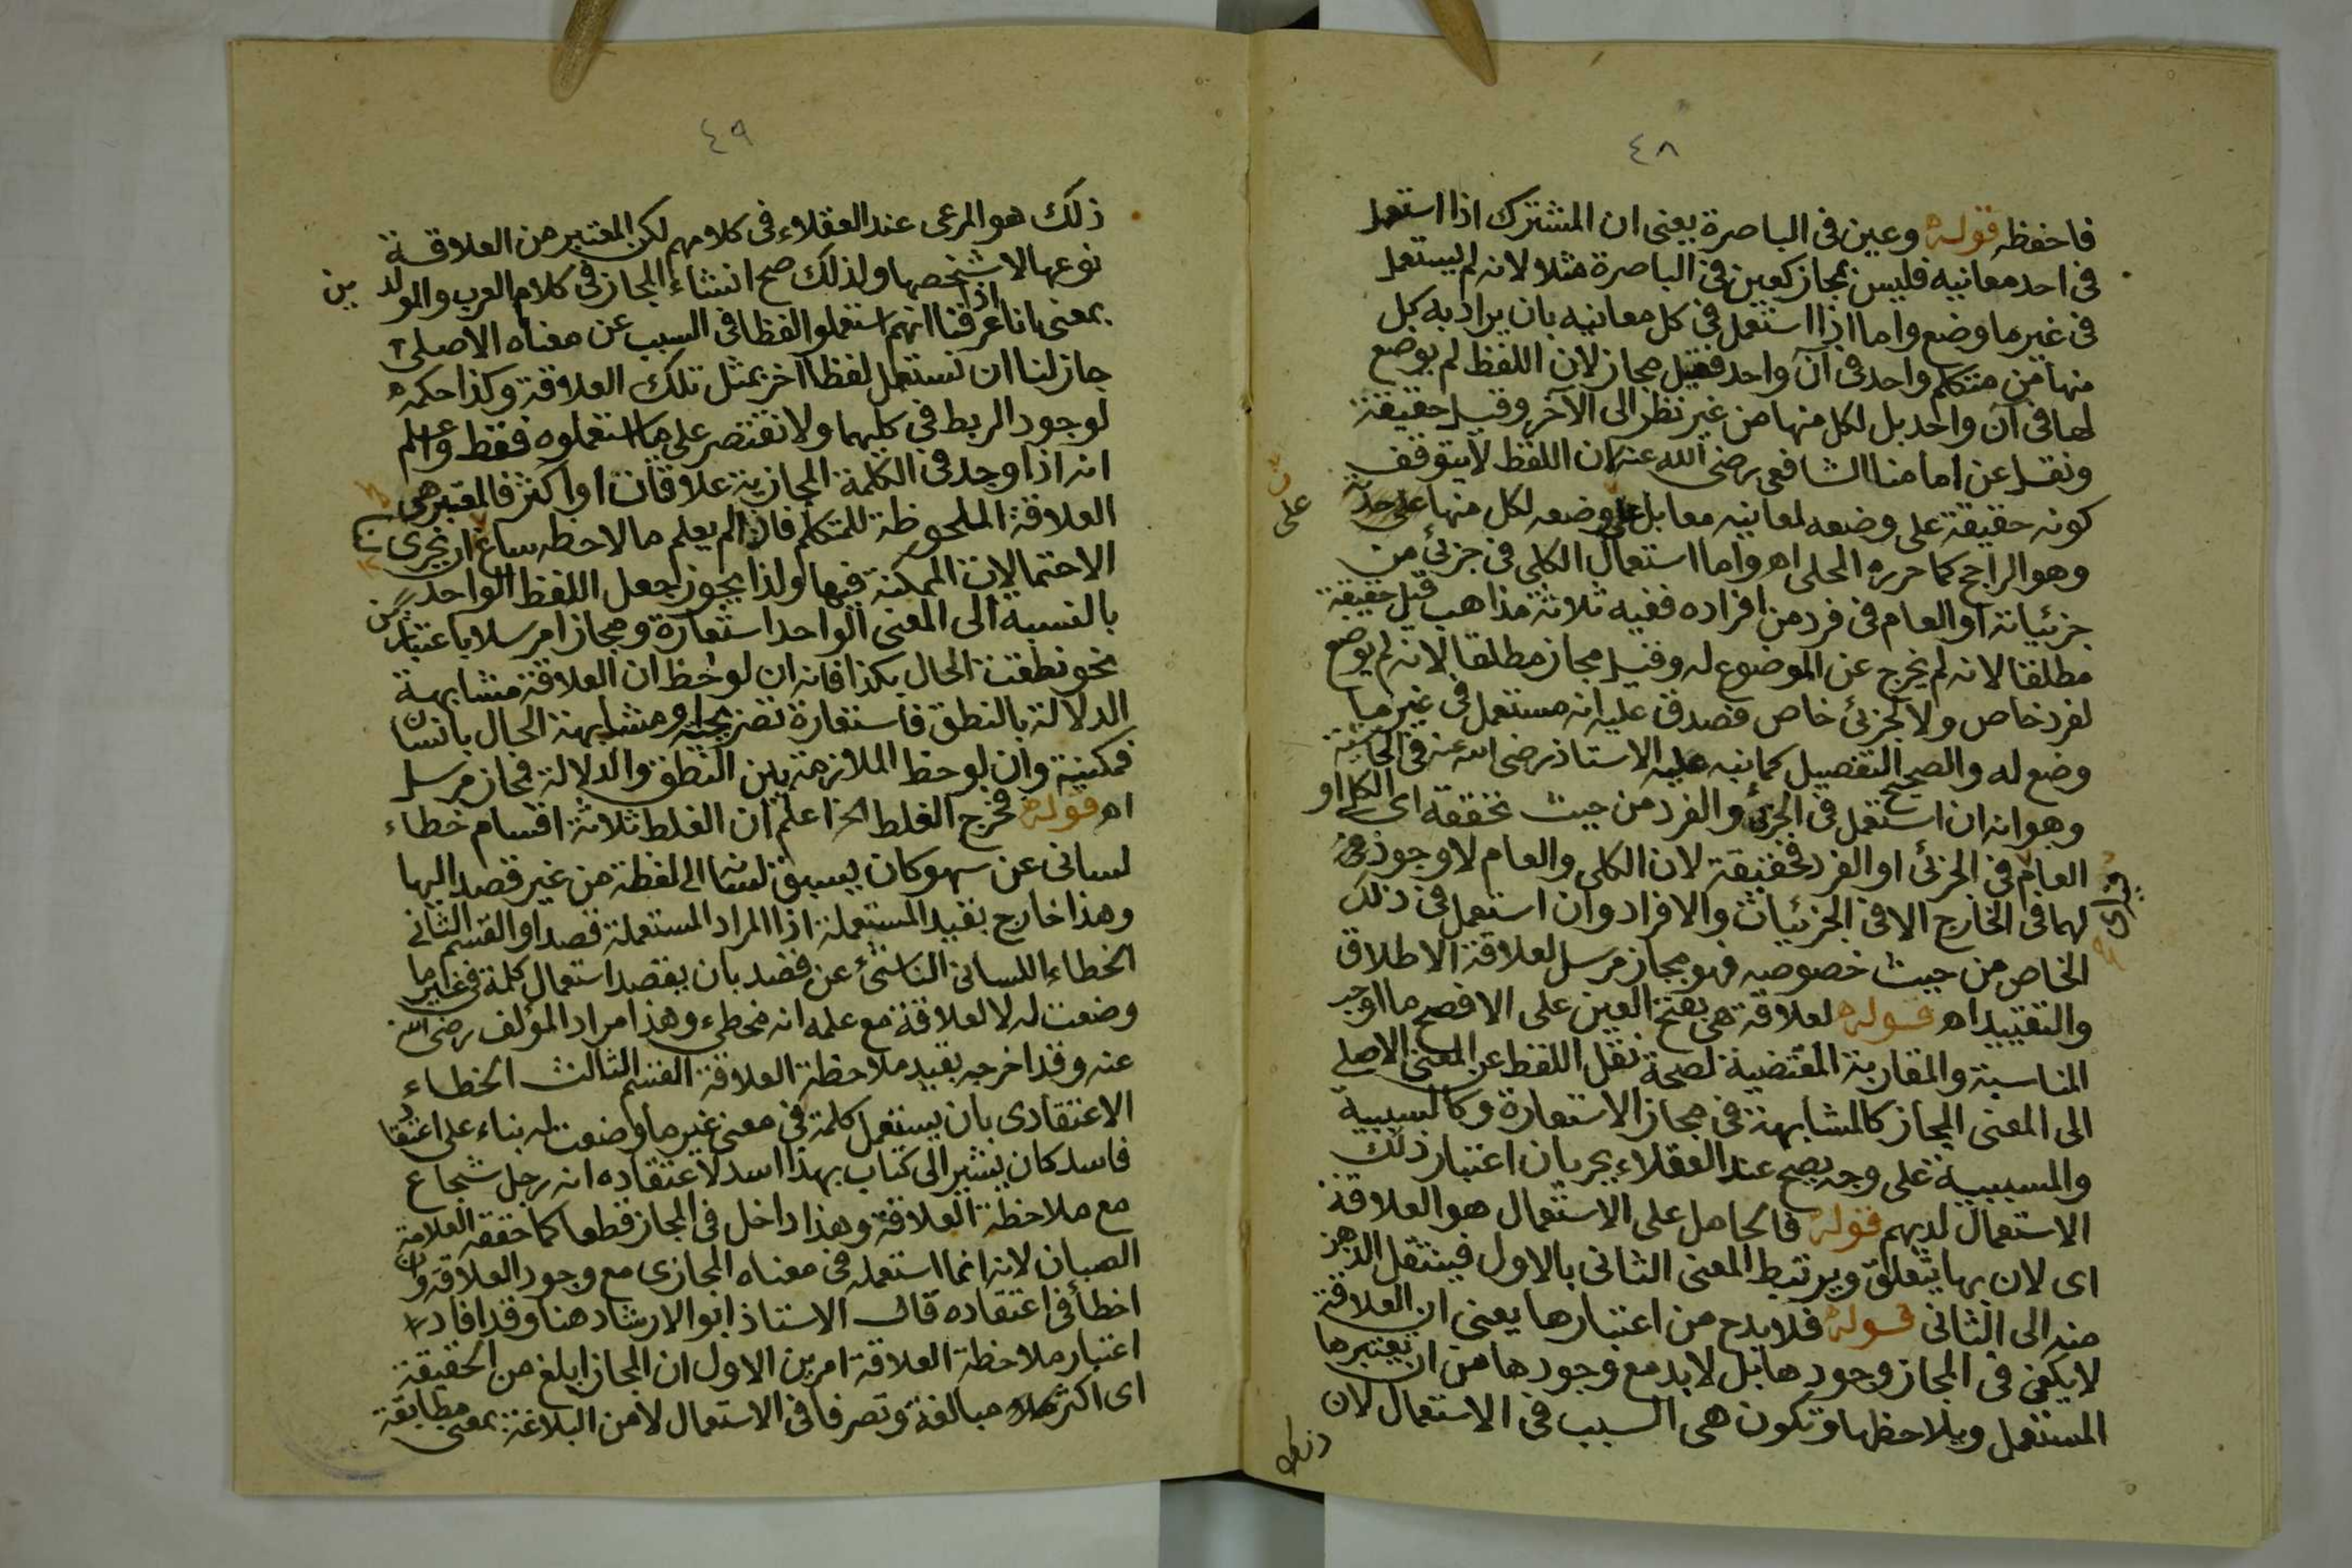 ٤٨
فاحفظه قوله وعين فى الباصرة يعنى ان المشترك اذا استعمل
فى احد معانيه فليس بمجاز كعين فى الباصرة مثلا لانه لم يستعمل
فى غير ما وضع واما اذا استعمل فى كل معانيه بان يراد به كل
منها من متكلم واحد فى آن واحد فقيل مجاز لان اللفظ لم يوضع
لها فى آن واحد بل لكل منها من غير نظر الى الآخر وقيل حقيقة
ونقل عن امامنا الشافعى رضى الله عنه لان اللفظ لا يتوقف
كونه حقيقة على وضعه لمعانيه معا بل على وضعه لكل منها على حدته
على
وهو الراجح كما حرره المحلى اه واما استعمال الكلى فى جزئى من
جزئياته او العام فى فرد من افراده ففيه ثلاثة مذاهب قيل حقيقة
مطلقا لانه لم يخرج عن الموضوع له وقيل مجاز مطلقا لانه لم يوضع
لفرد خاص ولا لجزئى خاص فصدق عليه انه مستعمل فى غير ما
وضع له والصحيح التفصيل كما نبه عليه الاستاذ رضى الله عنه فى الحاشية
وهو انه ان استعمل فى الجزئى والفرد من حيث تحققه اى الكلى او
العام فى الجزئى او الفرد فحقيقة لان الكلى والعام لا وجود
لهما فى الخارج الا فى الجزئيات والافراد وان استعمل فى ذلك
الخاص من حيث خصوصه فهو مجاز مرسل لعلاقة الاطلاق
والتقييد اه قوله لعلاقة هى بفتح العين على الافصح ما اوجب
المناسبة والمقاربة المقتضية لصحة نقل اللفظ عن المعنى الاصلى
الى المعنى المجاز كالمشابهة فى مجاز الاستعارة وكالسببية
والمسببية على وجه يصح عند العقلاء بجريان اعتبار ذلك
الاستعمال لديهم قوله فالحامل على الاستعمال هو العلاقة
اى لان بها يتعلق ويرتبط المعنى الثانى بالاول فينتقل الذهن
منه الى الثانى قوله فلا بد ح من اعتبارها يعنى ان العلاقة
لا يكفى فى المجاز وجودها بل لا بد مع وجودها من ان يعتبرها
المستعمل ويلاحظها وتكون هى السبب فى الاستعمال لان
ذلك
٤٩
ذلك هو المرعى عند العقلاء فى كلامهم لكن المعتبر من العلاقة
نوعها لا شخصها ولذلك صح انشاء المجاز فى كلام العرب والمولدين
بمعنى انا اذا عرفنا انهم استعملوا لفظا فى السبب عن معناه الاصلى
جاز لنا ان نستعمل لفظا آخر بمثل تلك العلاقة وكذا حكمه
لوجود الربط فى كليهما ولا نقتصر على ما استعملوه فقط واعلم
انه اذا وجد فى الكلمة المجازية علاقتان او اكثر فالمعتبر هى
العلاقة الملحوظة للمتكلم فاذا لم يعلم ما لاحظه ساغ ان نجرى
الاحتمالات الممكنة فيها ولذا يجوز جعل اللفظ الواحد
بالنسبة الى المعنى الواحد استعارة ومجازا مرسلا باعتبارين
نحو نطقت الحال بكذا فانه ان لوحظ ان العلاقة مشابهة
الدلالة بالنطق فاستعارة تصريحية او مشابهة الحال بانسان
فمكنية وان لوحظ الملازمة بين النطق والدلالة فمجاز مرسل
اه قوله فخرج الغلط الخ اعلم ان الغلط ثلاثة اقسام خطاء
لسانى عن سهو كان يسبق لسانه الى لفظة من غير قصد اليها
وهذا خارج بقيد المستعملة اذا المراد المستعملة قصدا والقسم الثانى
الخطاء اللسانى الناشئ عن قصد بان يقصد استعمال كلمة فى غير ما
وضعت له لا لعلاقة مع علمه انه مخطىء وهذا مراد المؤلف رضى الله
عنه وقد اخرجه بقيد ملاحظة العلاقة القسم الثالث الخطاء
الاعتقادى بان يستعمل كلمة فى معنى غير ما وضعت له بناء على اعتقاد
فاسد كان يشير الى كتاب بهذا اسد لاعتقاده انه رجل شجاع
مع ملاحظة العلاقة وهذا داخل فى المجاز قطعا كما حققه العلامة
الصبان لانه انما استعمله فى معناه المجازى مع وجود العلاقة وان
اخطأ فى اعتقاده قال الاستاذ ابو الارشاد هنا وقد افاد
اعتبار ملاحظة العلاقة امرين الاول ان المجاز ابلغ من الحقيقة
اى اكثر مبالغة وتصرفا فى الاستعمال لا من البلاغة بمعنى مطابقة